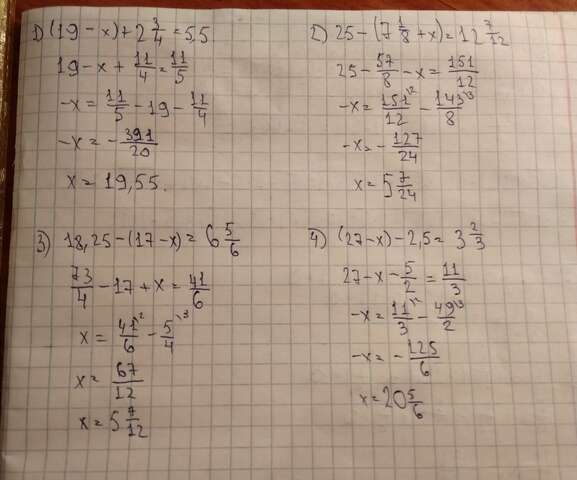 1) (19 - x) + 2 3/4 = 5,5
19 - x + 11/4 = 11/5
-x = 11/5 - 19 - 11/4
-x = - 391/20
x = 19,55.
2) 25 - (7 1/8 + x) = 12 7/12
25 - 57/8 - x = 151/12
-x = 151/12 \2 - 143/8 \3
-x = - 127/24
x = 5 7/24
3) 18,25 - (17 - x) = 6 5/6
73/4 - 17 + x = 41/6
x = 41/6 \2 - 5/4 \3
x = 67/12
x = 5 7/12
4) (27 - x) - 2,5 = 3 2/3
27 - x - 5/2 = 11/3
-x = 11/3 \2 - 49/2 \3
-x = - 125/6
x = 20 5/6